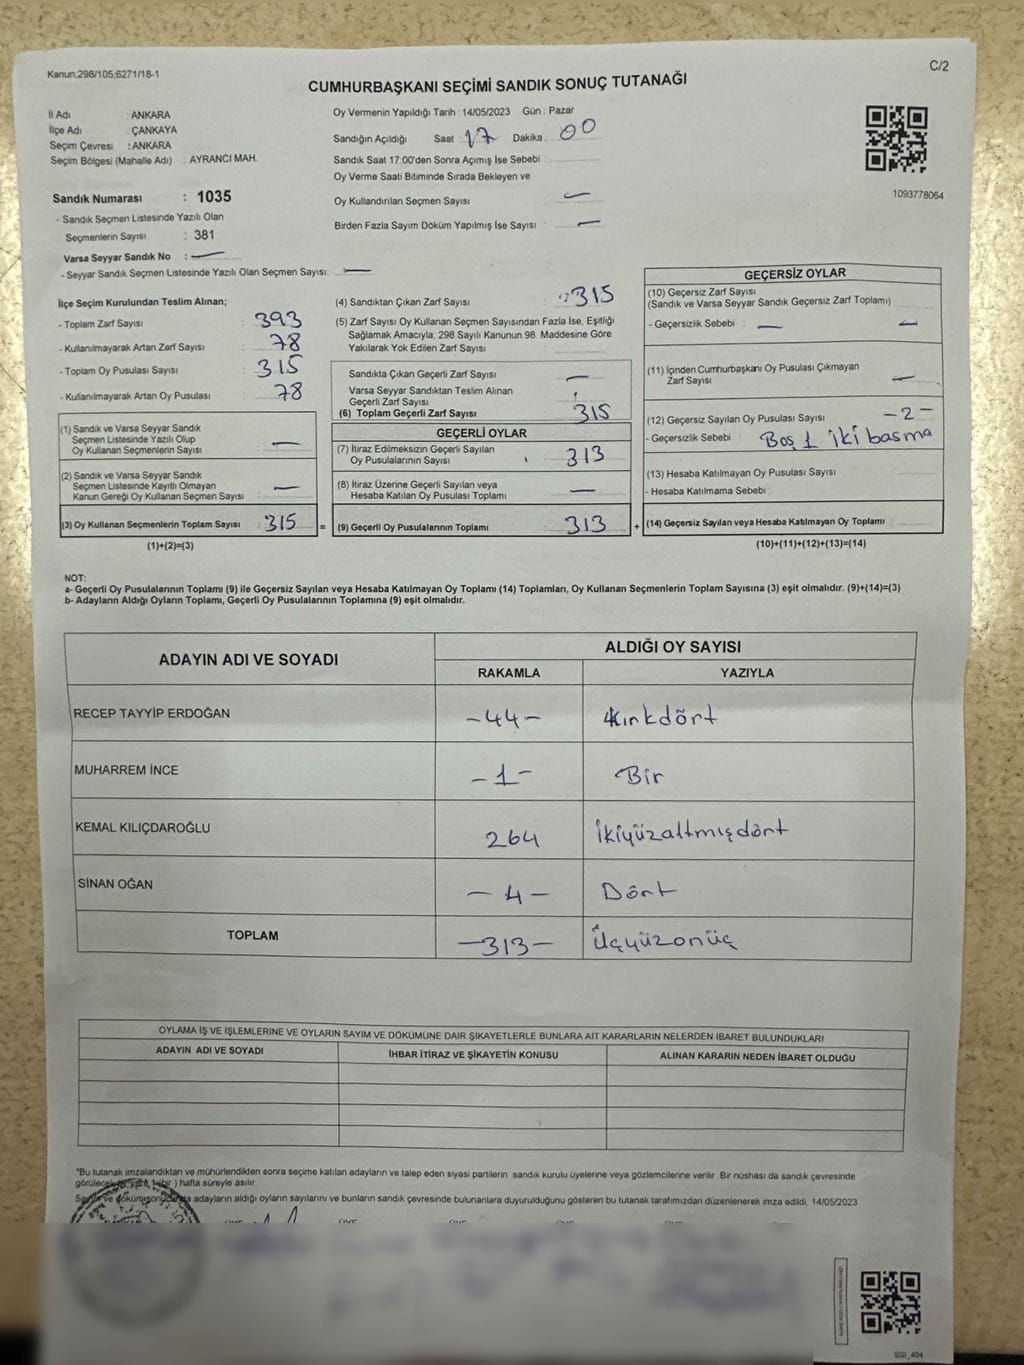 Kanun;298/105;6271/18-1
C/2
CUMHURBAŞKANI SEÇİMİ SANDIK SONUÇ TUTANAĞI
İl Adı : ANKARA
İlçe Adı : ÇANKAYA
Seçim Çevresi : ANKARA
Seçim Bölgesi (Mahalle Adı) : AYRANCI MAH.
Sandık Numarası : 1035
- Sandık Seçmen Listesinde Yazılı Olan
Seçmenlerin Sayısı : 381
Varsa Seyyar Sandık No : —
- Seyyar Sandık Seçmen Listesinde Yazılı Olan Seçmen Sayısı: —
Oy Vermenin Yapıldığı Tarih : 14/05/2023 Gün : Pazar
Sandığın Açıldığı Saat : 17 Dakika : 00
Sandık Saat 17:00'den Sonra Açımış İse Sebebi :
Oy Verme Saati Bitiminde Sırada Bekleyen ve
Oy Kullandırılan Seçmen Sayısı : —
Birden Fazla Sayım Döküm Yapılmış İse Sayısı : —
1093778064
İlçe Seçim Kurulundan Teslim Alınan;
- Toplam Zarf Sayısı : 393
- Kullanılmayarak Artan Zarf Sayısı : 78
- Toplam Oy Pusulası Sayısı : 315
- Kullanılmayarak Artan Oy Pusulası : 78
(1) Sandık ve Varsa Seyyar Sandık
Seçmen Listesinde Yazılı Olup
Oy Kullanan Seçmenlerin Sayısı : —
(2) Sandık ve Varsa Seyyar Sandık
Seçmen Listesinde Kayıtlı Olmayan
Kanun Gereği Oy Kullanan Seçmen Sayısı : —
(3) Oy Kullanan Seçmenlerin Toplam Sayısı : 315 =
(1)+(2)=(3)
(4) Sandıktan Çıkan Zarf Sayısı : 315
(5) Zarf Sayısı Oy Kullanan Seçmen Sayısından Fazla İse, Eşitliği
Sağlamak Amacıyla, 298 Sayılı Kanunun 98. Maddesine Göre
Yakılarak Yok Edilen Zarf Sayısı :
Sandıkta Çıkan Geçerli Zarf Sayısı : —
Varsa Seyyar Sandıktan Teslim Alınan
Geçerli Zarf Sayısı :
(6) Toplam Geçerli Zarf Sayısı : 315
GEÇERLİ OYLAR
(7) İtiraz Edilmeksizin Geçerli Sayılan
Oy Pusulalarının Sayısı : 313
(8) İtiraz Üzerine Geçerli Sayılan veya
Hesaba Katılan Oy Pusulası Toplamı : —
(9) Geçerli Oy Pusulalarının Toplamı : 313 +
GEÇERSİZ OYLAR
(10) Geçersiz Zarf Sayısı
(Sandık ve Varsa Seyyar Sandık Geçersiz Zarf Toplamı) :
- Geçersizlik Sebebi : — —
(11) İçinden Cumhurbaşkanı Oy Pusulası Çıkmayan
Zarf Sayısı : —
(12) Geçersiz Sayılan Oy Pusulası Sayısı : -2-
- Geçersizlik Sebebi : Boş 1 iki basma
(13) Hesaba Katılmayan Oy Pusulası Sayısı :
- Hesaba Katılmama Sebebi :
(14) Geçersiz Sayılan veya Hesaba Katılmayan Oy Toplamı :
(10)+(11)+(12)+(13)=(14)
NOT:
a- Geçerli Oy Pusulalarının Toplamı (9) ile Geçersiz Sayılan veya Hesaba Katılmayan Oy Toplamı (14) Toplamları, Oy Kullanan Seçmenlerin Toplam Sayısına (3) eşit olmalıdır. (9)+(14)=(3)
b- Adayların Aldığı Oyların Toplamı, Geçerli Oy Pusulalarının Toplamına (9) eşit olmalıdır.
ADAYIN ADI VE SOYADI
ALDIĞI OY SAYISI
RAKAMLA YAZIYLA
RECEP TAYYİP ERDOĞAN -44- Kırkdört
MUHARREM İNCE -1- Bir
KEMAL KILIÇDAROĞLU 264 İkiyüzaltmışdört
SİNAN OĞAN -4- Dört
TOPLAM -313- Üçyüzonüç
OYLAMA İŞ VE İŞLEMLERİNE VE OYLARIN SAYIM VE DÖKÜMÜNE DAİR ŞİKAYETLERLE BUNLARA AİT KARARLARIN NELERDEN İBARET BULUNDUKLARI
ADAYIN ADI VE SOYADI İHBAR İTİRAZ VE ŞİKAYETİN KONUSU ALINAN KARARIN NEDEN İBARET OLDUĞU
*Bu tutanak imzalandıktan ve mühürlendikten sonra seçime katılan adayların ve talep eden siyasi partilerin sandık kurulu üyelerine veya gözlemcilerine verilir. Bir nüshası da sandık çevresinde
görülecek bir yere ) hafta süreyle asılır.
Sayım ve döküm sonucunda adayların aldığı oyların sayılarını ve bunların sandık çevresinde bulunanlara duyurulduğunu gösteren bu tutanak tarafımızdan düzenlenerek imza edildi. 14/05/2023
SSI_404